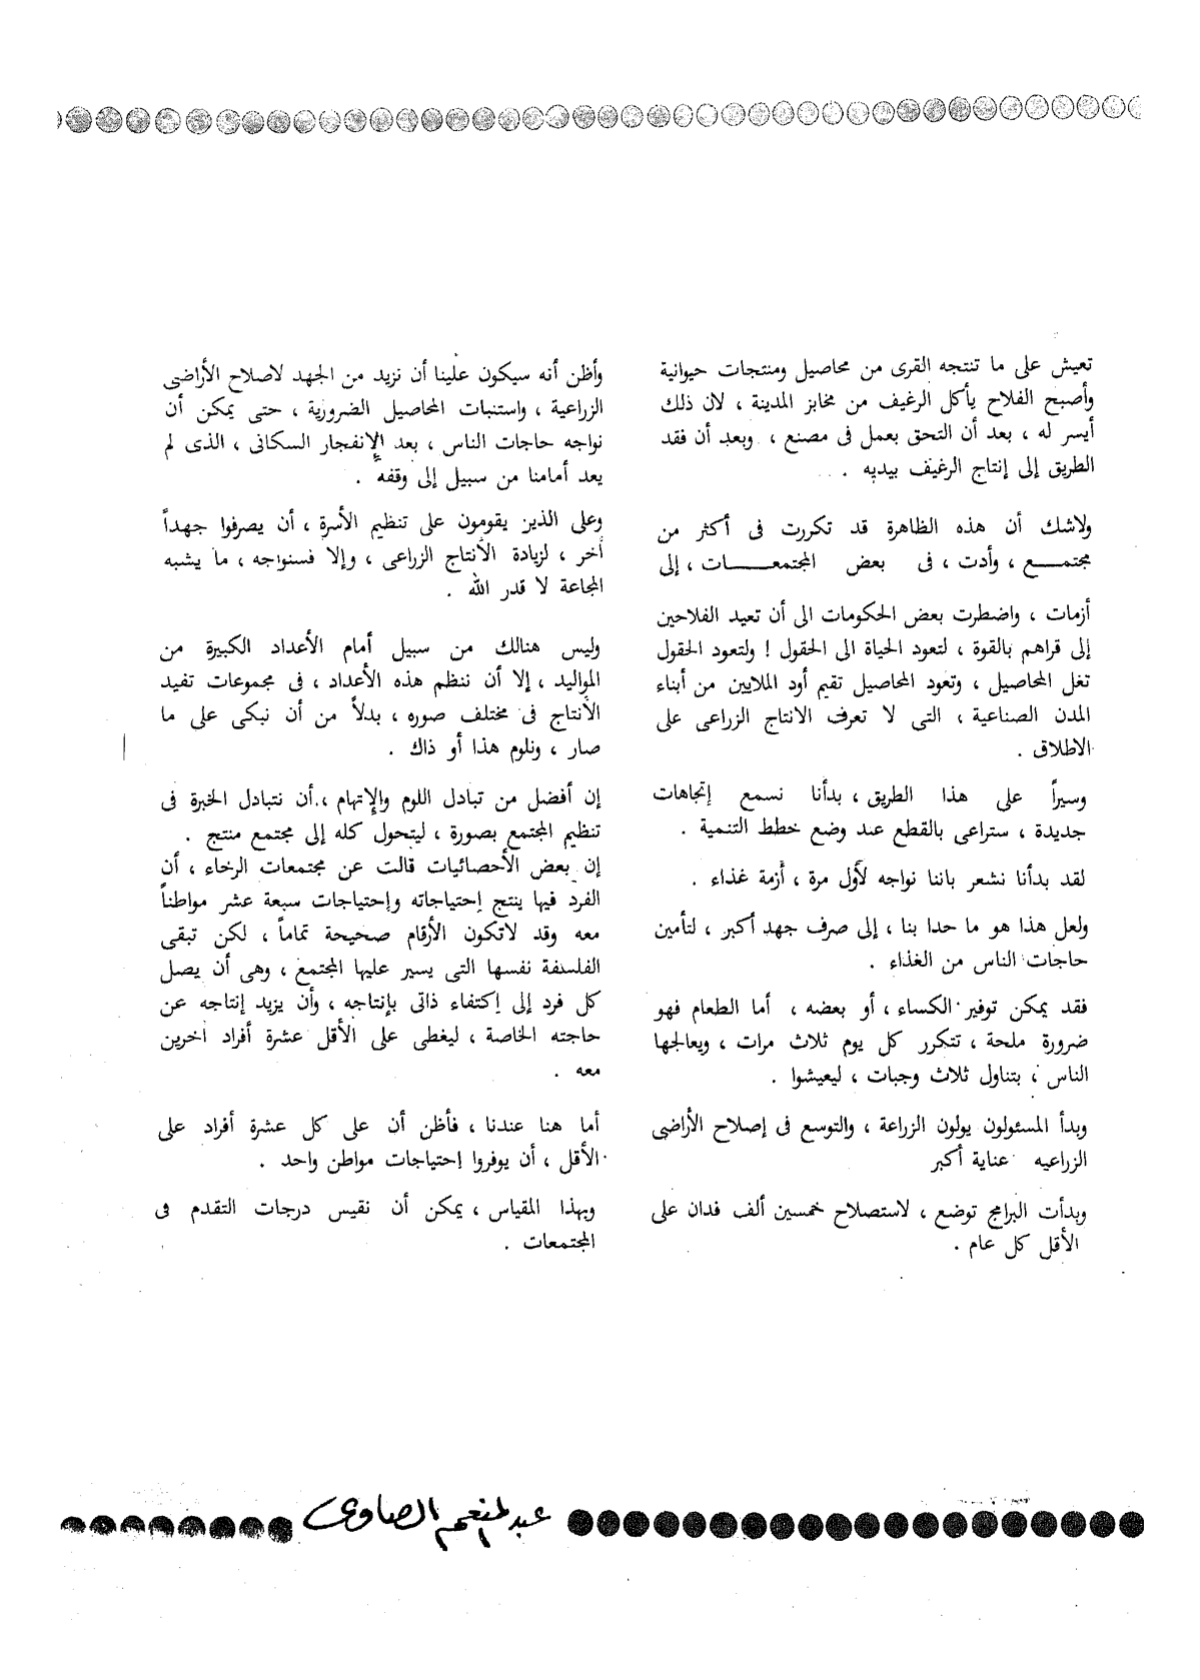 تعيش على ما تنتجه القرى من محاصيل ومنتجات حيوانية
وأصبح الفلاح يأكل الرغيف من مخابز المدينة ، لان ذلك
أيسر له ، بعد أن التحق بعمل فى مصنع ، وبعد أن فقد
الطريق إلى إنتاج الرغيف بيديه .
ولاشك أن هذه الظاهرة قد تكررت فى أكثر من
مجتمـــع ، وأدت ، فى بعض المجتمعـــات ، إلى
أزمات ، واضطرت بعض الحكومات الى أن تعيد الفلاحين
إلى قراهم بالقوة ، لتعود الحياة الى الحقول ! ولتعود الحقول
تغل المحاصيل ، وتعود المحاصيل تقيم أود الملايين من أبناء
المدن الصناعية ، التى لا تعرف الانتاج الزراعى على
الاطلاق .
وسيراً على هذا الطريق ، بدأنا نسمع إتجاهات
جديدة ، ستراعى بالقطع عند وضع خطط التنمية .
لقد بدأنا نشعر باننا نواجه لأول مرة ، أزمة غذاء .
ولعل هذا هو ما حدا بنا ، إلى صرف جهد أكبر ، لتأمين
حاجات الناس من الغذاء .
فقد يمكن توفير الكساء ، أو بعضه ، أما الطعام فهو
ضرورة ملحة ، تتكرر كل يوم ثلاث مرات ، ويعالجها
الناس ، بتناول ثلاث وجبات ، ليعيشوا .
وبدأ المسئولون يولون الزراعة ، والتوسع فى إصلاح الأراضى
الزراعيه عناية أكبر
وبدأت البرامج توضع ، لاستصلاح خمسين ألف فدان على
الأقل كل عام .
وأظن أنه سيكون علينا أن نزيد من الجهد لاصلاح الأراضى
الزراعية ، واستنبات المحاصيل الضرورية ، حتى يمكن أن
نواجه حاجات الناس ، بعد الإنفجار السكانى ، الذى لم
يعد أمامنا من سبيل إلى وقفه .
وعلى الذين يقومون على تنظيم الأسرة ، أن يصرفوا جهداً
أخر ، لزيادة الأنتاج الزراعى ، وإلا فسنواجه ، ما يشبه
المجاعة لا قدر الله .
وليس هنالك من سبيل أمام الأعداد الكبيرة من
المواليد ، إلا أن ننظم هذه الأعداد ، فى مجموعات تفيد
الأنتاج فى مختلف صوره ، بدلاً من أن نبكى على ما
صار ، ونلوم هذا أو ذاك .
إن أفضل من تبادل اللوم والإتهام ، أن نتبادل الخبرة فى
تنظيم المجتمع بصورة ، ليتحول كله إلى مجتمع منتج .
إن بعض الأحصائيات قالت عن مجتمعات الرخاء ، أن
الفرد فيها ينتج إحتياجاته وإحتياجات سبعة عشر مواطناً
معه وقد لاتكون الأرقام صحيحة تماماً ، لكن تبقى
الفلسفة نفسها التى يسير عليها المجتمع ، وهى أن يصل
كل فرد إلى إكتفاء ذاتى بإنتاجه ، وأن يزيد إنتاجه عن
حاجته الخاصة ، ليغطى على الأقل عشرة أفراد اخرين
معه .
أما هنا عندنا ، فأظن أن على كل عشرة أفراد على
الأقل ، أن يوفروا إحتياجات مواطن واحد .
وبهذا المقياس ، يمكن أن نقيس درجات التقدم فى
المجتمعات .
عبد المنعم الصاوى